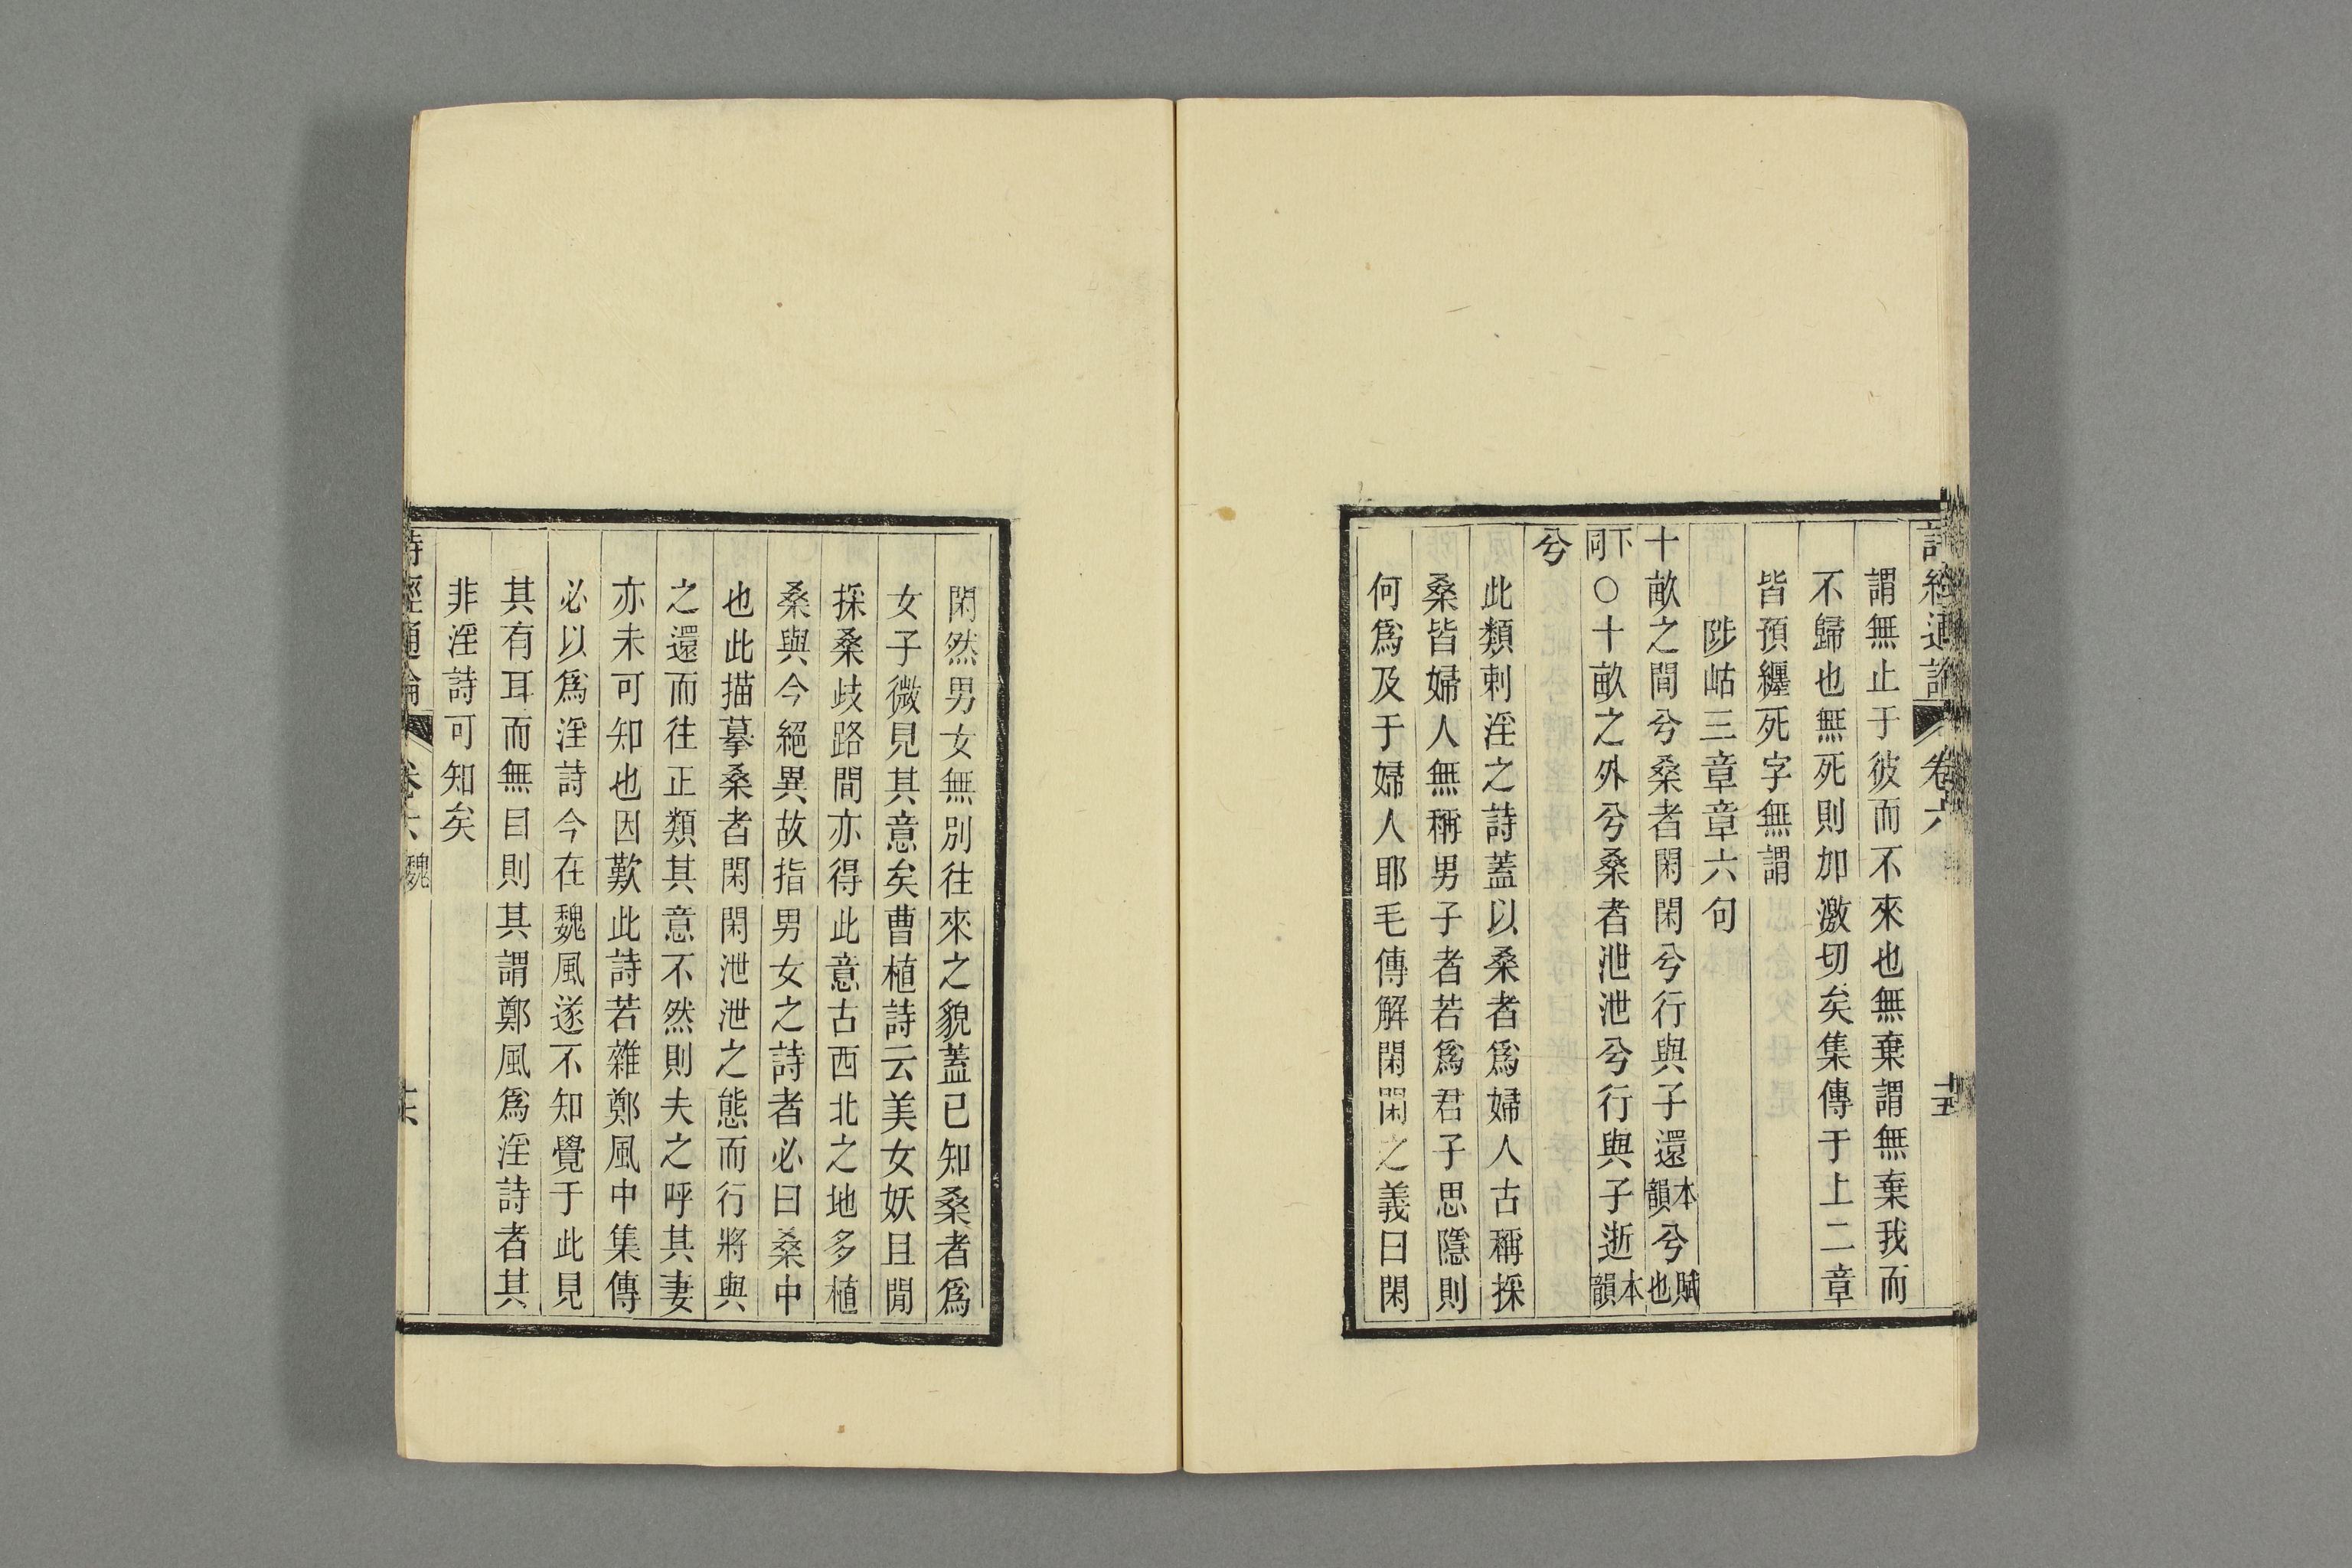 詩經通論 卷六 十五
謂無止于彼而不來也無棄謂無棄我而
不歸也無死則加激切矣集傳于上二章
皆預纏死字無謂
陟岵三章章六句
十畝之間兮桑者閑閑兮行與子還本韻兮賦也
下同○十畝之外兮桑者泄泄兮行與子逝本韻
兮
此類刺淫之詩蓋以桑者為婦人古稱採
桑皆婦人無稱男子者若為君子思隱則
何為及于婦人耶毛傳解閑閑之義曰閑
閑然男女無別往來之貌蓋已知桑者為
女子微見其意矣曹植詩云美女妖且閒
採桑歧路間亦得此意古西北之地多植
桑與今絕異故指男女之詩者必曰桑中
也此描摹桑者閑閑泄泄之態而行將與
之還而往正類其意不然則夫之呼其妻
亦未可知也因歎此詩若雜鄭風中集傳
必以為淫詩今在魏風遂不知覺于此見
其有耳而無目則其謂鄭風為淫詩者其
非淫詩可知矣
詩經通論 卷六 魏 十六